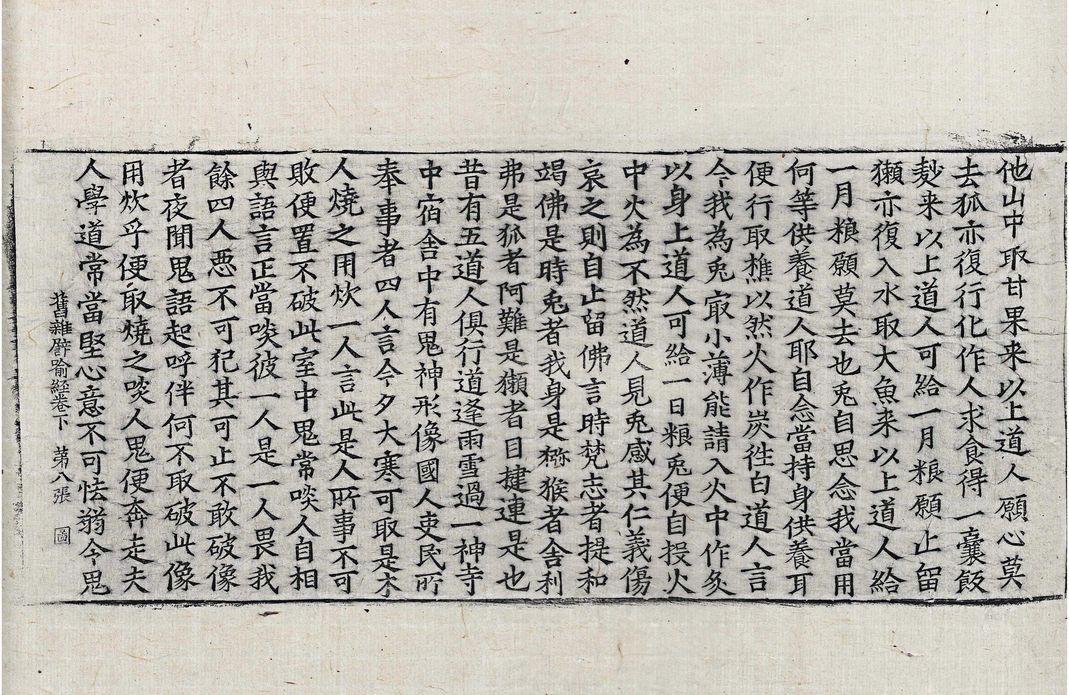 他山中取甘果来以上道人願心莫
去狐亦復行化作人求食得一囊飯
麨来以上道人可給一月粮願止留
獺亦復入水取大魚来以上道人給
一月粮願莫去也兎自思念我當用
何等供養道人耶自念當持身供養耳
便行取樵以然火作炭徃白道人言
今我為兎㝡小薄能請入火中作炙
以身上道人可給一日粮兎便自投火
中火為不然道人見兎感其仁義傷
哀之則自止留佛言時梵志者提和
竭佛是時兎者我身是獼猴者舍利
弗是狐者阿難是獺者目揵連是也
昔有五道人俱行道逢雨雪過一神寺
中宿舍中有鬼神形像國人吏民所
奉事者四人言今夕大寒可取是木
人燒之用炊一人言此是人所事不可
敗便置不破此室中鬼常啖人自相
與語言正當啖彼一人是一人畏我
餘四人惡不可犯其可止不敢破像
者夜聞鬼語起呼伴何不取破此像
用炊乎便取燒之啖人鬼便奔走夫
人學道常當堅心意不可怯弱令鬼
舊雜譬喻經卷下　第八張